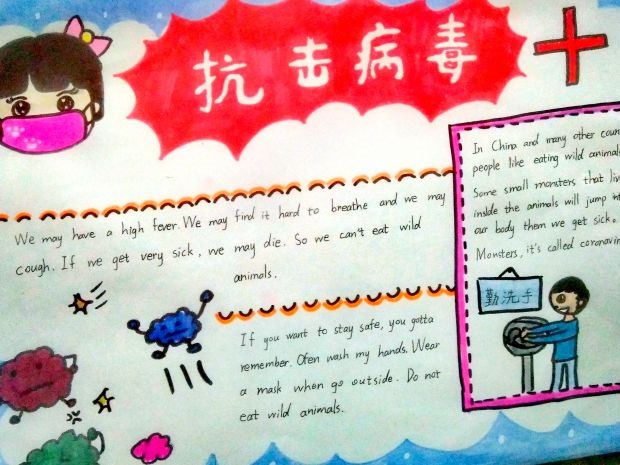 抗击病毒
In China and many other coun
people like eating wild animals
Some small monsters that liv
inside the animals will jump int
our body them we get sick.
Monsters, it's called coronavir
勤洗手
We may have a high fever. We may find it hard to breathe and we may
cough. If we get very sick, we may die. So we can't eat wild
animals.
If you want to stay safe, you gotta
remember. Ofen wash my hands. Wear
a mask when go outside. Do not
eat wild animals.